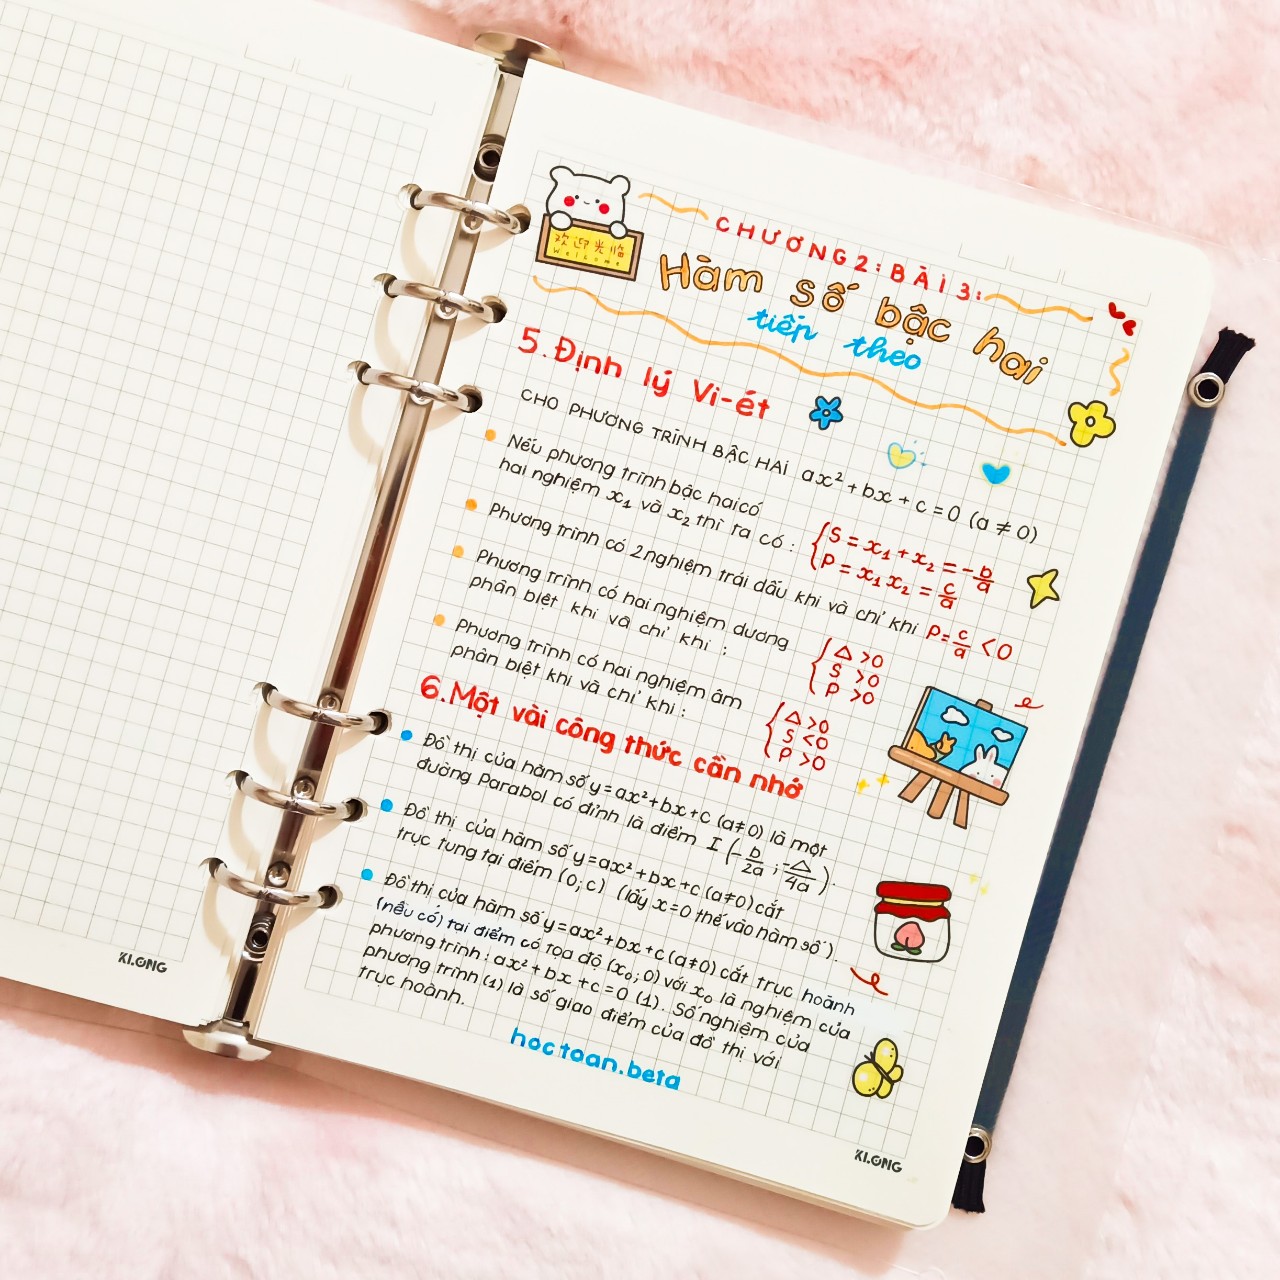 欢迎光临
Welcome
CHƯƠNG 2: BÀI 3:
Hàm số bậc hai
tiếp theo
5. Định lý Vi-ét
CHO PHƯƠNG TRÌNH BẬC HAI ax² + bx + c = 0 (a ≠ 0)
Nếu phương trình bậc hai có
hai nghiệm x₁ và x₂ thì ta có : { S = x₁ + x₂ = -b/a
P = x₁ x₂ = c/a
Phương trình có 2 nghiệm trái dấu khi và chỉ khi P = c/a < 0
Phương trình có hai nghiệm dương
phân biệt khi và chỉ khi : { Δ > 0
S > 0
P > 0
Phương trình có hai nghiệm âm
phân biệt khi và chỉ khi : { Δ > 0
S < 0
P > 0
6. Một vài công thức cần nhớ
Đồ thị của hàm số y = ax² + bx + c (a ≠ 0) là một
đường Parabol có đỉnh là điểm I (-b/2a ; -Δ/4a).
Đồ thị của hàm số y = ax² + bx + c (a ≠ 0) cắt
trục tung tại điểm (0; c) (lấy x = 0 thế vào hàm số).
Đồ thị của hàm số y = ax² + bx + c (a ≠ 0) cắt trục hoành
(nếu có) tại điểm có tọa độ (x₀; 0) với x₀ là nghiệm của
phương trình : ax² + bx + c = 0 (1). Số nghiệm của
phương trình (1) là số giao điểm của đồ thị với
trục hoành.
hoctoan.beta
KI.ONG
KI.ONG